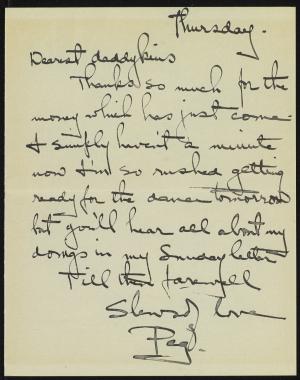 Thursday.
Dearest daddykins
Thanks so much for the
money which has just come.
I simply haven't a minute
now I'm so rushed getting
ready for the dance tomorrow
but you'll hear all about my
doings in my Sunday letter
Till then farewell
Slews of love
Peg.